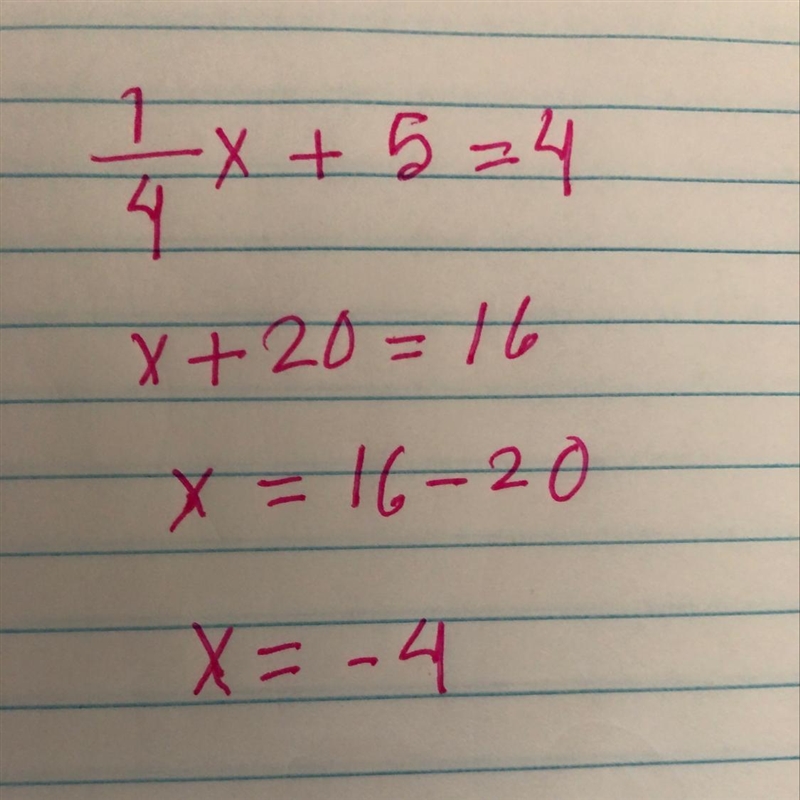 1/4 x + 5 = 4
x + 20 = 16
x = 16 - 20
x = -4